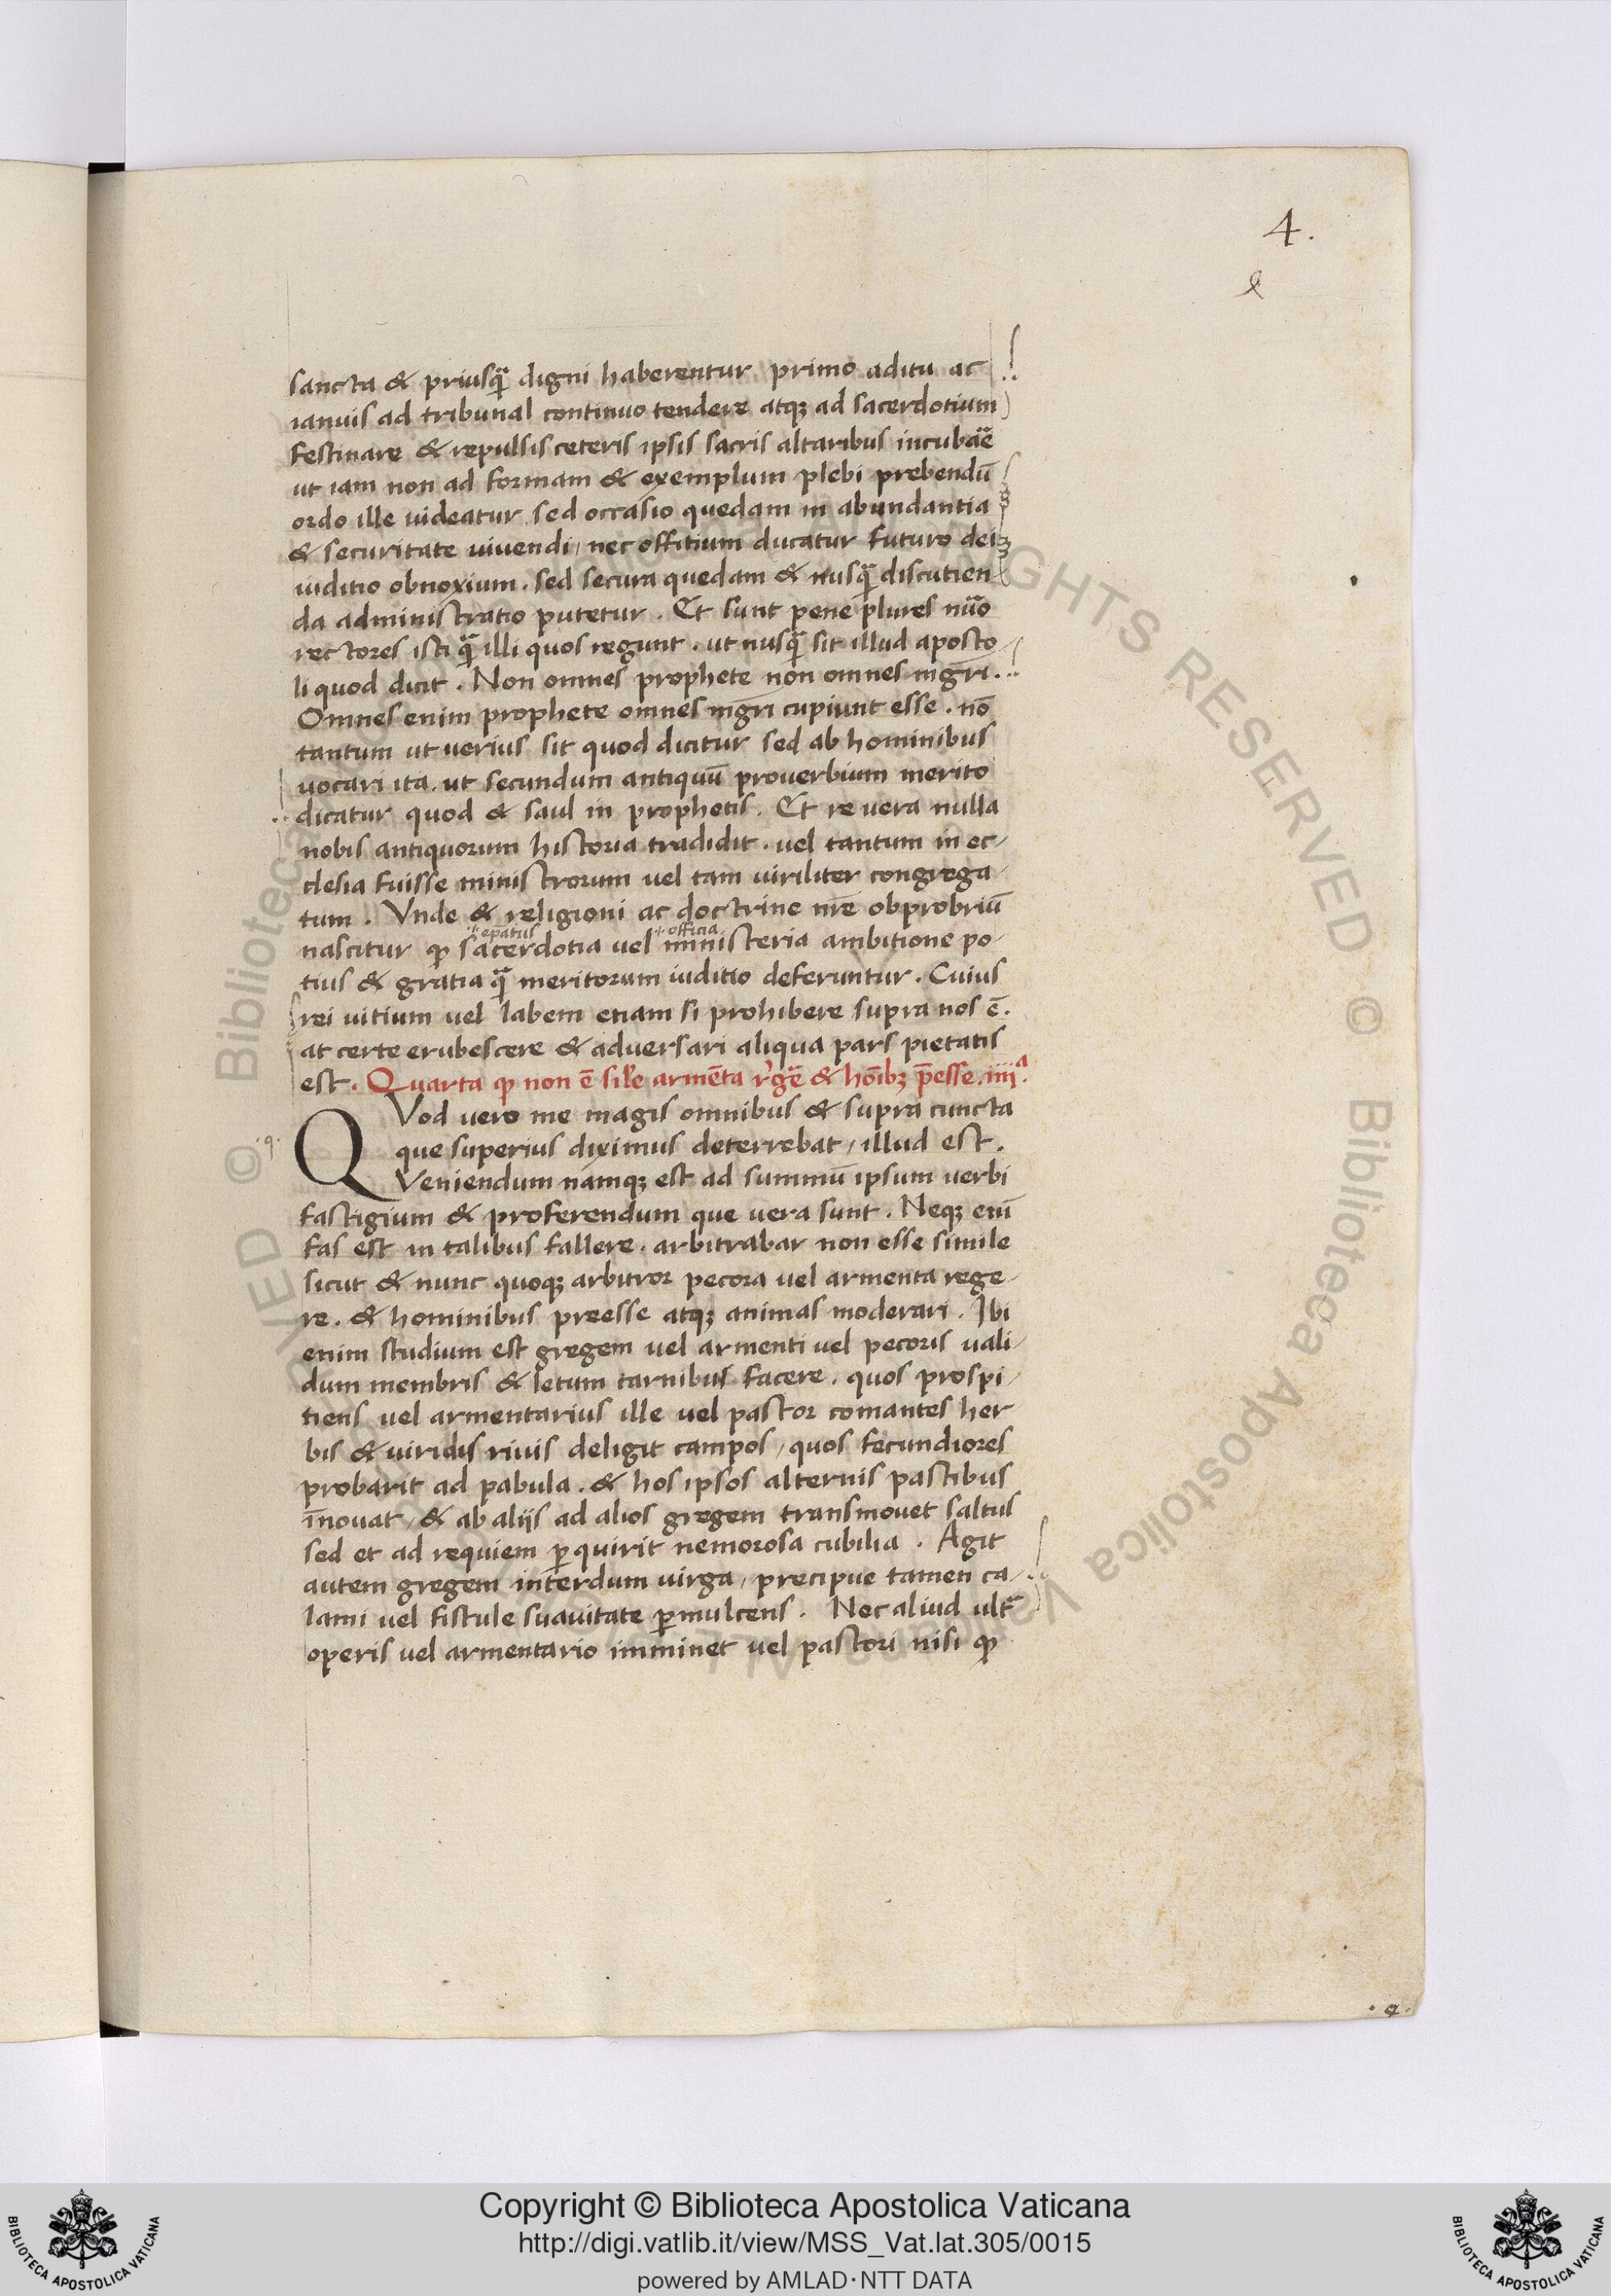 4.
sancta & priusqꝫ̃ digni haberentur primo aditu ac
ianuis ad tribunal continuo tendere atqꝫ ad sacerdotium
festinare & repulsis ceteris ipsis sacris altaribus incubãe
ut iam non ad formam & exemplum plebi prebendũ
ordo ille uideatur sed occasio quedam in abundantia
& securitate uiuendi, nec offitium ducatur futuro dei
iuditio obnoxium. sed secura quedam & nusq̃ discutien
da administratio putetur. Et sunt pene plures nũo
rectores isti q̃ illi quos regunt. ut nusq̃ sit illud aposto
li quod dicit. Non omnes prophete non omnes mgr̃i.
Omnes enim prophete omnes mgr̃i cupiunt esse. nõ
tantum ut uerius sit quod dicitur sed ab hominibus
uocari ita. ut secundum antiquũ prouerbium merito
dicatur quod & saul in prophetis. Et re vera nulla
nobis antiquorum historia tradidit. uel tantum in ec-
clesia fuisse ministrorum vel tam uiriliter congrega-
tum. Vnde & religioni ac doctrine nr̃e obprobriũ
.i. ep̃atus .i. officia
nascitur ꝙ sacerdotia uel ministeria ambitione po-
tius & gratia q̃ meritorum iuditio deferuntur. Cuius
rei uitium uel labem etiam si prohibere supra nos ẽ.
at certe erubescere & adversari aliqua pars pietatis
est. Quarta ꝙ non ẽ sil̃e armẽta r̃gẽ & hõibꝫ p̃esse. iiijª.
.q.
QVod vero me magis omnibus & supra cuncta
que superius diximus deterrebat, illud est.
Veniendum namqꝫ est ad summũ ipsum verbi
fastigium & proferendum que vera sunt. Neqꝫ enĩ
fas est in talibus fallere. arbitrabar non esse simile
sicut & nunc quoqꝫ arbitror pecora vel armenta rege-
re. & hominibus preesse atqꝫ animas moderari. Ibi
enim studium est gregem vel armenti vel pecoris uali-
dum membris & letum carnibus facere. quos prospi-
tiens uel armentarius ille vel pastor comantes her
bis & uiridis riuis deligit campos, quos fecundiores
probarit ad pabula. & hos ipsos alternis pastibus
ĩnouat, & ab alijs ad alios gregem transmouet saltus
sed et ad requiem ꝑquirit nemorosa cubilia. Agit
autem gregem interdum uirga, precipue tamen ca-
lami vel fistule suauitate ꝑmulcens. Nec aliud ult̃
operis vel armentario imminet vel pastori nisi ꝙ
.a.
© Biblioteca Apostolica Vaticana ALL RIGHTS RESERVED
Copyright © Biblioteca Apostolica Vaticana
http://digi.vatlib.it/view/MSS_Vat.lat.305/0015
powered by AMLAD·NTT DATA
BIBLIOTECA APOSTOLICA VATICANA
BIBLIOTECA APOSTOLICA VATICANA